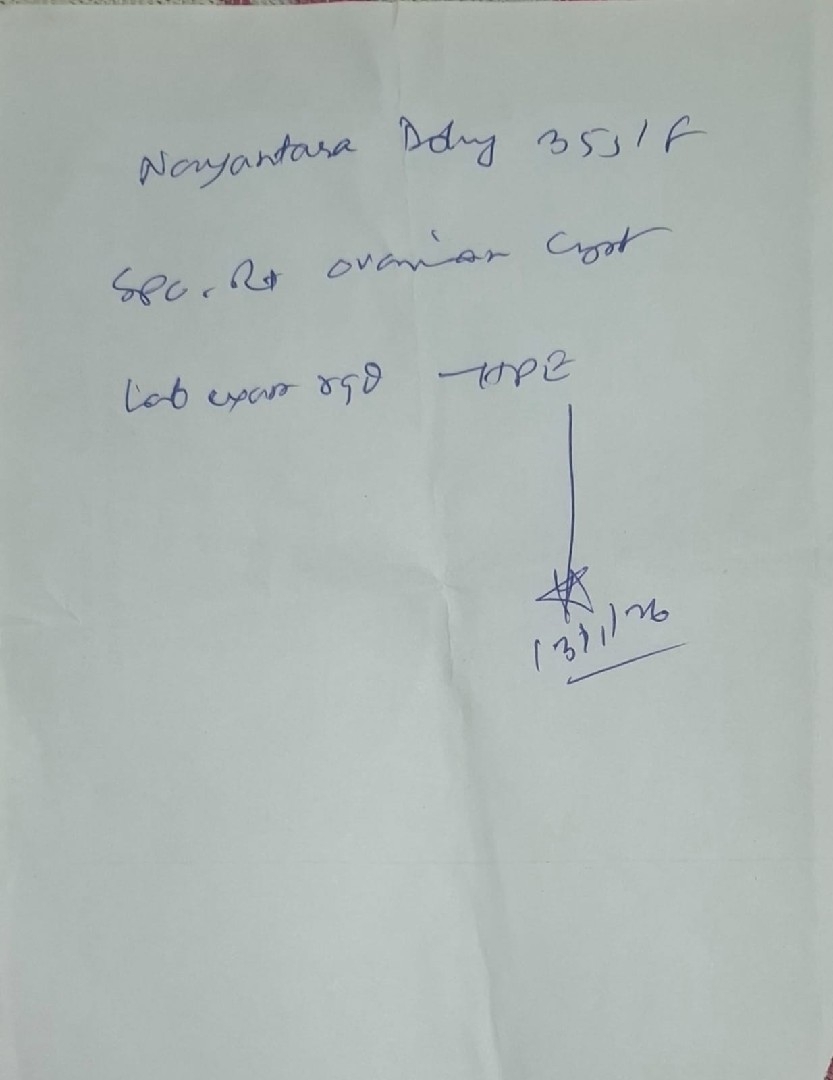 Nayantara 35y/F
Spc. Rt ovarian Cyst
Lab exam rqd HPE
13/1/26